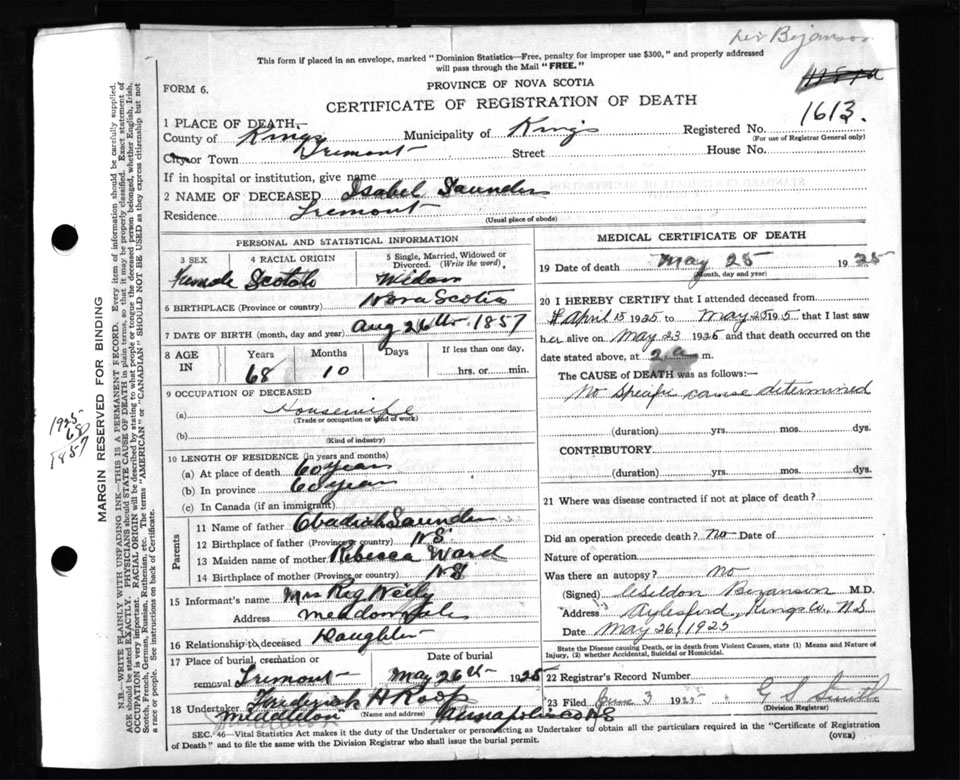 Bezanson
This form if placed in an envelope, marked "Dominion Statistics—Free, penalty for improper use $300," and properly addressed
will pass through the Mail "FREE."
FORM 6.
PROVINCE OF NOVA SCOTIA
CERTIFICATE OF REGISTRATION OF DEATH
1613.
1 PLACE OF DEATH,—
County of Kings Municipality of Kings Registered No.
(For use of Registrar General only)
City or Town Tremont Street House No.
If in hospital or institution, give name
2 NAME OF DECEASED Isabel Saunders
Residence Tremont
(Usual place of abode)
PERSONAL AND STATISTICAL INFORMATION
3 SEX 4 RACIAL ORIGIN 5 Single, Married, Widowed or Divorced. (Write the word.)
Female Scotch Widow
6 BIRTHPLACE (Province or country) Nova Scotia
7 DATE OF BIRTH (month, day and year) Aug 26th 1857
8 AGE IN Years Months Days If less than one day,
68 10 hrs. or min.
9 OCCUPATION OF DECEASED
(a) Housewife
(Trade or occupation or kind of work)
(b)
(Kind of industry)
10 LENGTH OF RESIDENCE (in years and months)
(a) At place of death 60 years
(b) In province 60 years
(c) In Canada (if an immigrant)
Parents
11 Name of father Obadiah Saunders
12 Birthplace of father (Province or country) NS
13 Maiden name of mother Rebecca Ward
14 Birthplace of mother (Province or country) NS
15 Informant's name Mrs Reg Neily
Address Meadowvale
16 Relationship to deceased Daughter
17 Place of burial, cremation or removal Tremont Date of burial May 26th 1925
18 Undertaker Frederick H Roop
Middleton (Name and address) Annapolis Co NS
MEDICAL CERTIFICATE OF DEATH
19 Date of death May 25 1925
(Month, day and year)
20 I HEREBY CERTIFY that I attended deceased from
April 15 1925 to May 25 1925 that I last saw
her alive on May 23 1925 and that death occurred on the
date stated above, at 2 a m.
The CAUSE of DEATH was as follows:—
No specific cause determined
(duration) yrs. mos. dys.
CONTRIBUTORY
(duration) yrs. mos. dys.
21 Where was disease contracted if not at place of death?
Did an operation precede death? No Date of
Nature of operation
Was there an autopsy? No
(Signed) Bezanson M.D.
Address Aylesford, Kings Co, N.S
Date May 26/1925
State the Disease causing Death, or in death from Violent Causes, state (1) Means and Nature of
Injury, (2) whether Accidental, Suicidal or Homicidal.
22 Registrar's Record Number
23 Filed June 3 1925 G S Smith
(Division Registrar)
SEC. 46—Vital Statistics Act makes it the duty of the Undertaker or person acting as Undertaker to obtain all the particulars required in the "Certificate of Registration
of Death" and to file the same with the Division Registrar who shall issue the burial permit.
(OVER)
MARGIN RESERVED FOR BINDING
N.B.—WRITE PLAINLY WITH UNFADING INK—THIS IS A PERMANENT RECORD. Every item of information should be carefully supplied.
AGE should be stated EXACTLY. PHYSICIANS should STATE CAUSE OF DEATH in plain terms, so that it may be properly classified. Exact statement of
OCCUPATION is very important. RACIAL ORIGIN will be described by stating to what people or tongue the deceased person belonged, whether English, Irish,
Scotch, French, German, Russian, Ruthenian, etc. The terms "AMERICAN" or "CANADIAN" SHOULD NOT BE USED as they express citizenship but not
a race or people. See instructions on back of Certificate.
1925
68
1857